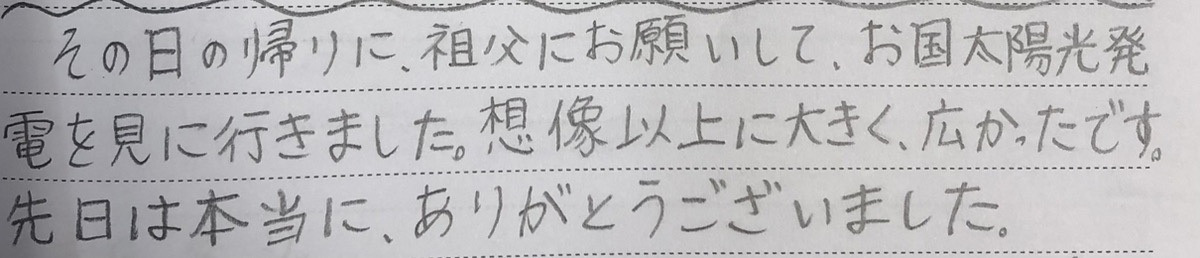 その日の帰りに、祖父にお願いして、お国太陽光発
電を見に行きました。想像以上に大きく、広かったです。
先日は本当に、ありがとうございました。